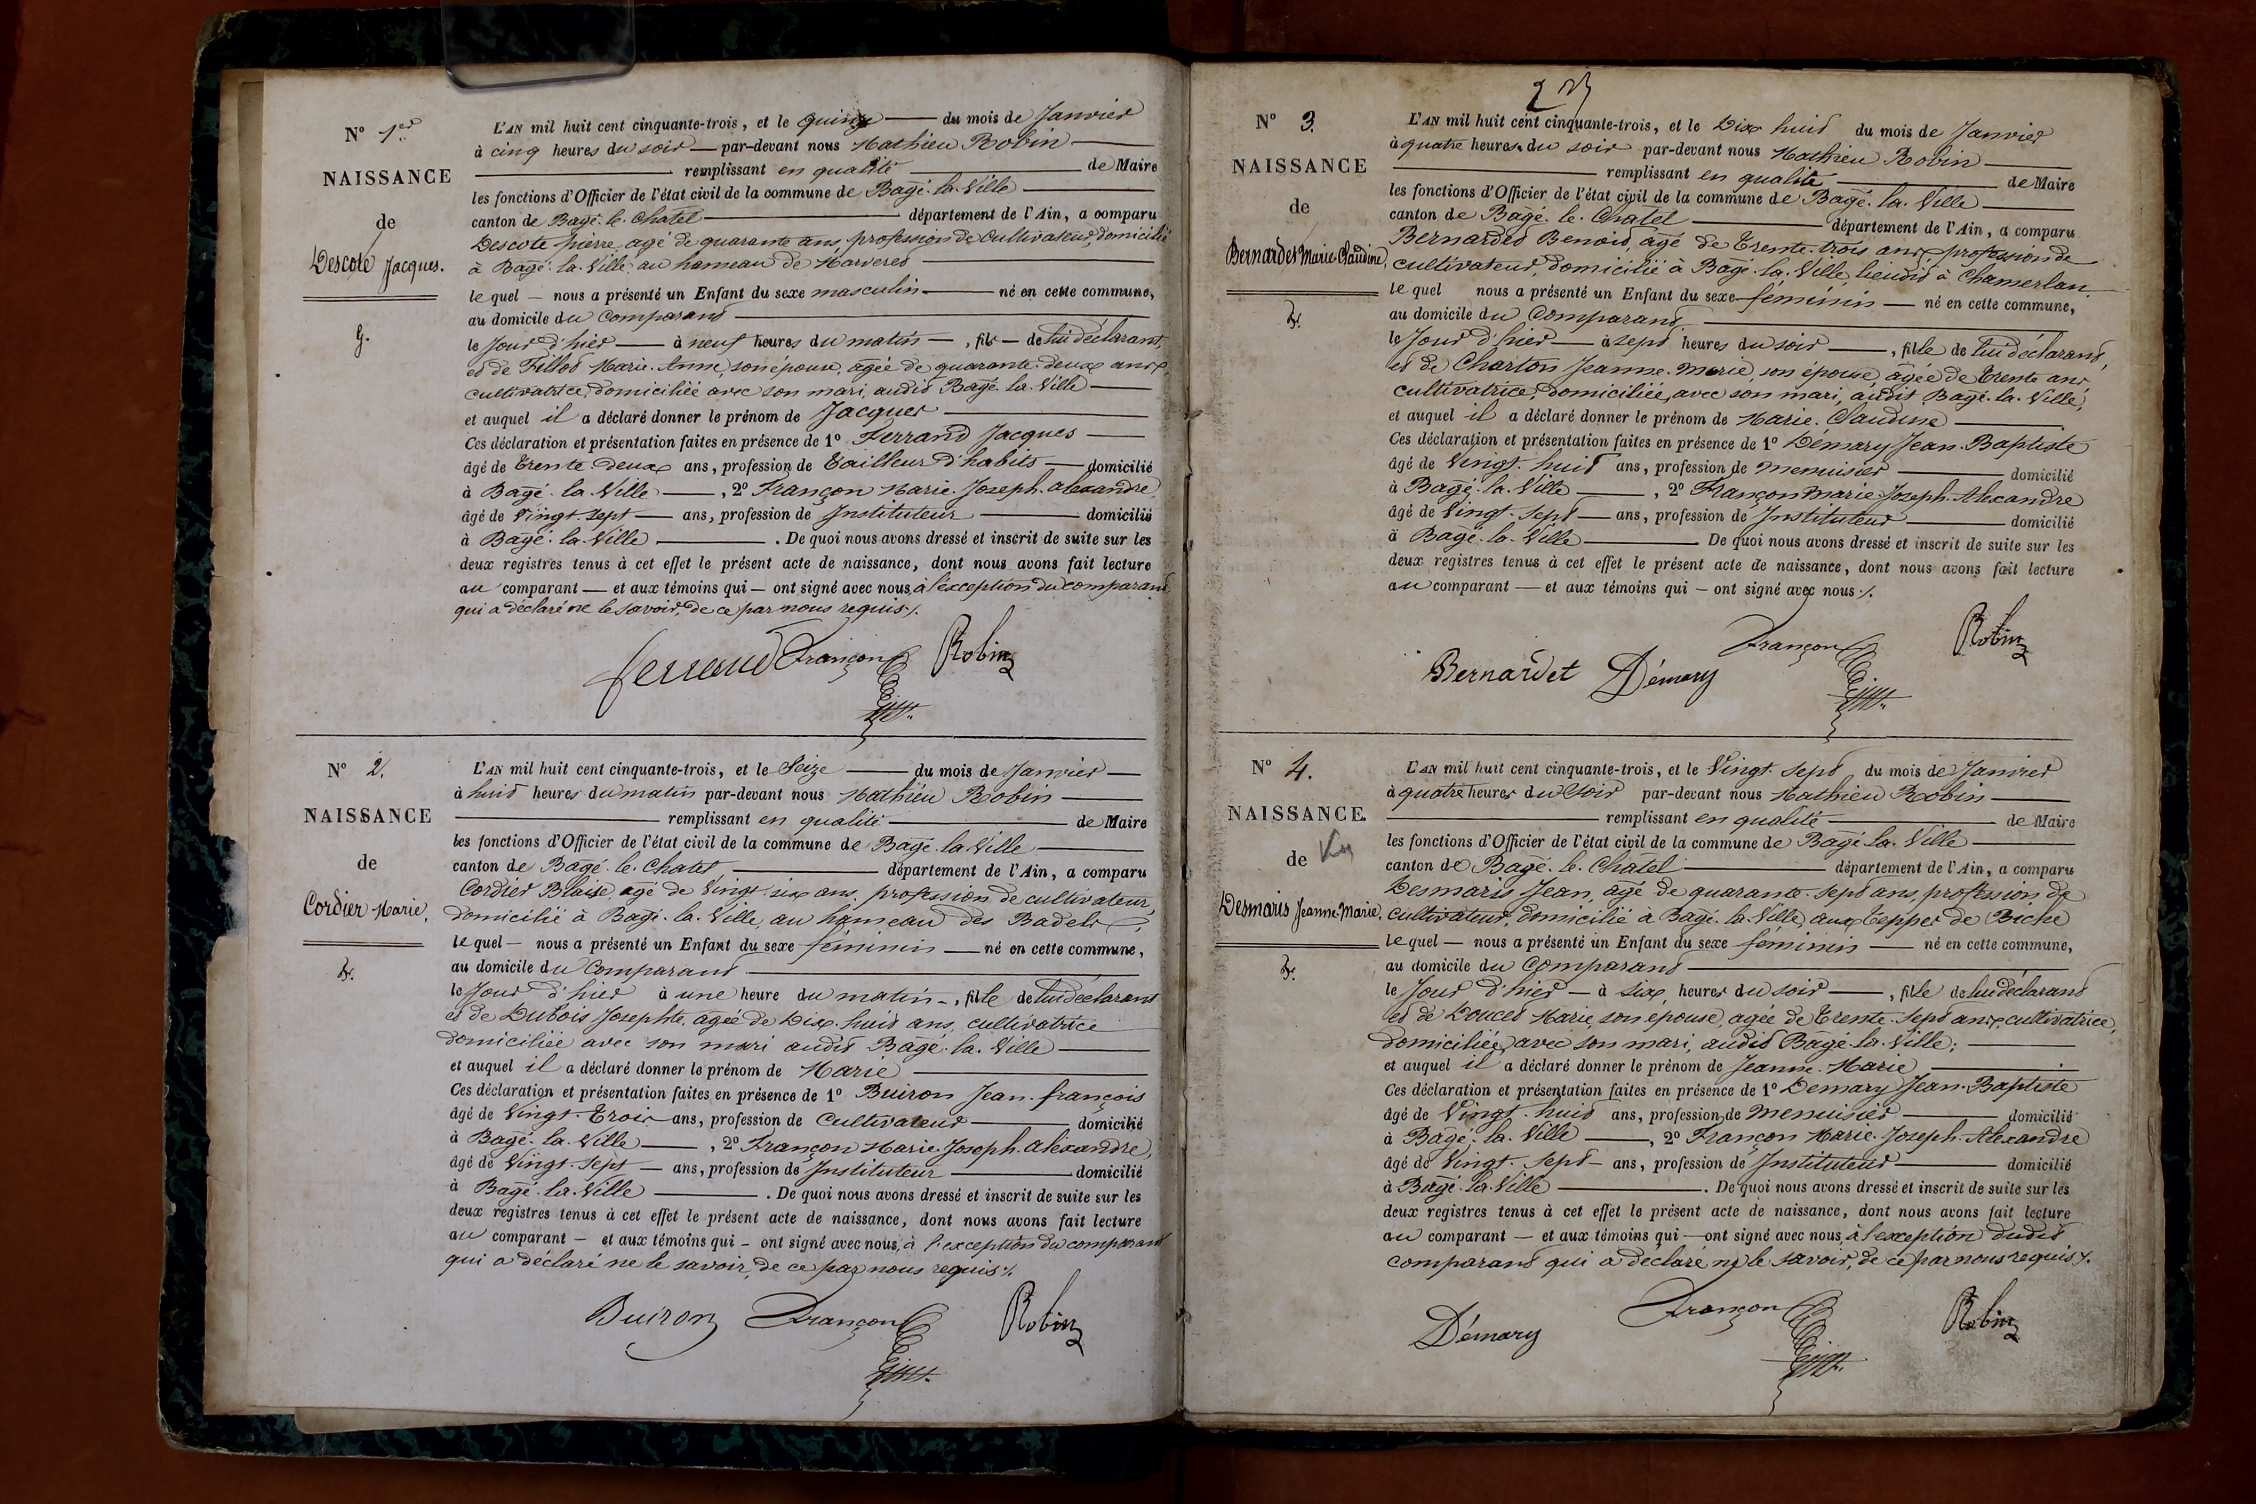 N° 1er
NAISSANCE
de
Descote Jacques.
G.
L'AN mil huit cent cinquante-trois, et le quinze du mois de Janvier
à cinq heures du soir par-devant nous Mathieu Robin
remplissant en qualité de Maire
les fonctions d'Officier de l'état civil de la commune de Bagé-la-Ville
canton de Bagé-le-Chatel département de l'Ain, a comparu
Descote Pierre, agé de quarante ans, profession de Cultivateur, domicilié
à Bagé-la-Ville, au hameau de
le quel nous a présenté un Enfant du sexe masculin né en cette commune,
au domicile du Comparant
le Jour d'hier à neuf heures du matin, fils de lui déclarant,
et de Fillot Marie-Anne, son épouse, agée de quarante-deux ans
cultivatrice, domiciliée avec son mari, audit Bagé-la-Ville
et auquel il a déclaré donner le prénom de Jacques
Ces déclaration et présentation faites en présence de 1° Ferrand Jacques
âgé de trente-deux ans, profession de tailleur d'habits domicilié
à Bagé-la-Ville, 2° Françon Marie-Joseph-Alexandre,
âgé de Vingt-sept ans, profession de Instituteur domicilié
à Bagé-la-Ville. De quoi nous avons dressé et inscrit de suite sur les
deux registres tenus à cet effet le présent acte de naissance, dont nous avons fait lecture
au comparant et aux témoins qui ont signé avec nous, à l'exception du comparant
qui a déclaré ne le savoir, de ce par nous requis./.
Ferrand Françon Robin
N° 2.
NAISSANCE
de
Cordier Marie.
f.
L'AN mil huit cent cinquante-trois, et le Seize du mois de Janvier
à huit heures du matin par-devant nous Mathieu Robin
remplissant en qualité de Maire
les fonctions d'Officier de l'état civil de la commune de Bagé-la-Ville
canton de Bagé-le-Chatel département de l'Ain, a comparu
Cordier Blaise, agé de Vingt-six ans, profession de cultivateur,
domicilié à Bagé-la-Ville, au hameau des Badels
le quel nous a présenté un Enfant du sexe féminin né en cette commune,
au domicile du Comparant
le Jour d'hier à une heure du matin, fille de lui déclarant
et de Dubois Josephte, agée de Dix-huit ans, cultivatrice
domiciliée avec son mari audit Bagé-la-Ville
et auquel il a déclaré donner le prénom de Marie
Ces déclaration et présentation faites en présence de 1° Buiron Jean-françois
âgé de Vingt-trois ans, profession de Cultivateur domicilié
à Bagé-la-Ville, 2° Françon Marie-Joseph-Alexandre,
âgé de Vingt-sept ans, profession de Instituteur domicilié
à Bagé-la-Ville. De quoi nous avons dressé et inscrit de suite sur les
deux registres tenus à cet effet le présent acte de naissance, dont nous avons fait lecture
au comparant et aux témoins qui ont signé avec nous, à l'exception du comparant
qui a déclaré ne le savoir, de ce par nous requis./.
Buiron Françon Robin
N° 3.
NAISSANCE
de
Bernardet Marie-Claudine,
f.
L'AN mil huit cent cinquante-trois, et le Dix-huit du mois de Janvier
à quatre heures du soir par-devant nous Mathieu Robin
remplissant en qualité de Maire
les fonctions d'Officier de l'état civil de la commune de Bagé-la-Ville
canton de Bagé-le-Chatel département de l'Ain, a comparu
Bernardet Benoit, agé de trente-trois ans, profession de
cultivateur, domicilié à Bagé-la-Ville, lieudit à Chamerlan.
le quel nous a présenté un Enfant du sexe féminin né en cette commune,
au domicile du Comparant,
le Jour d'hier à sept heures du soir, fille de lui déclarant,
et de Charton Jeanne-Marie, son épouse, agée de trente ans,
cultivatrice, domiciliée avec son mari, audit Bagé-la-Ville;
et auquel il a déclaré donner le prénom de Marie-Claudine
Ces déclaration et présentation faites en présence de 1° Démary Jean-Baptiste
âgé de Vingt-huit ans, profession de menuisier domicilié
à Bagé-la-Ville, 2° Françon Marie-Joseph-Alexandre
âgé de Vingt-sept ans, profession de Instituteur domicilié
à Bagé-la-Ville De quoi nous avons dressé et inscrit de suite sur les
deux registres tenus à cet effet le présent acte de naissance, dont nous avons fait lecture
au comparant et aux témoins qui ont signé avec nous./.
Bernardet Démary Françon Robin
N° 4.
NAISSANCE.
de
Desmaris Jeanne-Marie.
f.
L'AN mil huit cent cinquante-trois, et le Vingt-sept du mois de Janvier
à quatre heures du Soir par-devant nous Mathieu Robin
remplissant en qualité de Maire
les fonctions d'Officier de l'état civil de la commune de Bagé-la-Ville
canton de Bagé-le-Chatel département de l'Ain, a comparu
Desmaris Jean, agé de quarante-sept ans, profession de
cultivateur, domicilié à Bagé-la-Ville, aux Teppes de Biche
le quel nous a présenté un Enfant du sexe féminin né en cette commune,
au domicile du Comparant
le Jour d'hier à six heures du soir, fille de lui déclarant
et de Doucet Marie, son épouse, agée de trente-sept ans, cultivatrice,
domiciliée avec son mari, audit Bagé-la-Ville;
et auquel il a déclaré donner le prénom de Jeanne-Marie
Ces déclaration et présentation faites en présence de 1° Demary Jean-Baptiste
âgé de Vingt-huit ans, profession de menuisier domicilié
à Bagé-la-Ville, 2° Françon Marie-Joseph-Alexandre
âgé de Vingt-sept ans, profession de Instituteur domicilié
à Bagé-la-Ville. De quoi nous avons dressé et inscrit de suite sur les
deux registres tenus à cet effet le présent acte de naissance, dont nous avons fait lecture
au comparant et aux témoins qui ont signé avec nous, à l'exception dudit
comparant qui a déclaré ne le savoir, de ce par nous requis./.
Démary Françon Robin